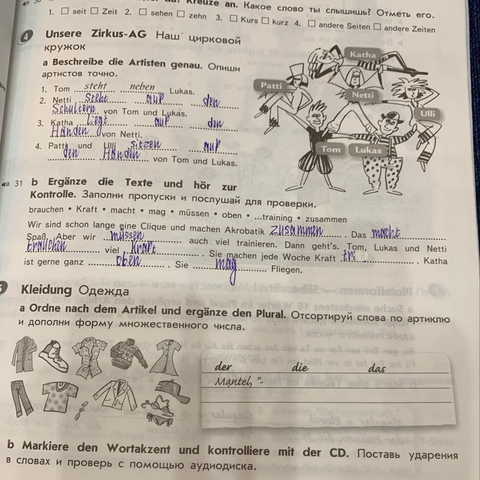 Kreuze an. Какое слово ты слышишь? Отметь его.
1. □ seit □ Zeit 2. □ sehen □ zehn 3. □ Kurs □ kurz 4. □ andere Seiten □ andere Zeiten
4 Unsere Zirkus-AG Наш цирковой
кружок
a Beschreibe die Artisten genau. Опиши
артистов точно.
1. Tom steht neben Lukas.
2. Netti steht auf den
Schultern von Tom und Lukas.
3. Katha liegt auf den
Händen von Netti.
4. Patti und Ulli sitzen auf
den Händen von Tom und Lukas.
Katha
Patti
Netti
Ulli
Tom Lukas
31 b Ergänze die Texte und hör zur
Kontrolle. Заполни пропуски и послушай для проверки.
brauchen • Kraft • macht • mag • müssen • oben • ...training • zusammen
Wir sind schon lange eine Clique und machen Akrobatik zusammen. Das macht
Spaß. Aber wir müssen auch viel trainieren. Dann geht's. Tom, Lukas und Netti
brauchen viel Kraft. Sie machen jede Woche Kraft tri. Katha
ist gerne ganz oben. Sie mag Fliegen.
5 Kleidung Одежда
a Ordne nach dem Artikel und ergänze den Plural. Отсортируй слова по артиклю
и дополни форму множественного числа.
der die das
Mantel, "-
b Markiere den Wortakzent und kontrolliere mit der CD. Поставь ударения
в словах и проверь с помощью аудиодиска.